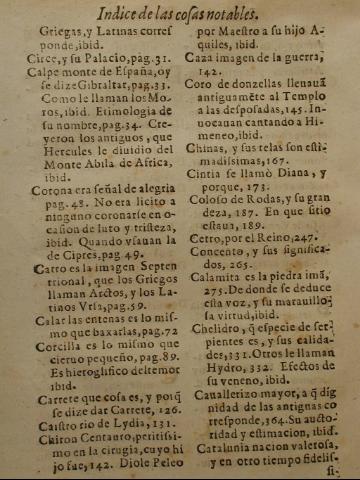 Indice de las cosas notables.
Griegas, y Latinas corres
ponde, ibid.
Circe, y su Palacio, pag. 31.
Calpe monte de España, oy
se dize Gibraltar, pag. 33.
Como le llaman los Mo-
ros, ibid. Etimologia de
su nombre, pag. 34. Cre-
yeron los antiguos, que
Hercules le diuidio del
Monte Abila de Africa,
ibid.
Corona era señal de alegria
pag. 48. No era licito a
ninguno coronarse en o-
casion de luto y tristeza,
ibid. Quando vsauan la
de Cipres, pag. 49.
Carro es la imagen Septen
trional, que los Griegos
llaman Arctos, y los La-
tinos Vrsa, pag. 59.
Calar las entenas es lo mis-
mo que baxarlas, pag. 72
Corcilla es lo mismo que
cieruo pequeño, pag. 89.
Es hieroglifico del temor
ibid.
Carrete que cosa es, y porq̃
se dize dar Carrete, 126.
Caistro rio de Lydia, 131.
Chiron Centauro, peritissi-
mo en la cirugia, cuyo hi
jo fue, 142. Diole Peleo
por Maestro a su hijo A-
quiles, ibid.
Caza imagen de la guerra,
142.
Coro de donzellas lleuauã
antiguamẽte al Templo
a las desposadas, 145. In-
uocauan cantando a Hi-
meneo, ibid.
Chinas, y sus telas son esti-
madissimas, 167.
Cintia se llamò Diana, y
porque, 173.
Coloso de Rodas, y su gran
deza, 187. En que sitio
estaua, 189.
Cetro, por el Reino, 247.
Concento, y sus significa-
dos, 265.
Calamita es la piedra imã,
275. De donde se deduce
esta voz, y su marauillo-
sa virtud, ibid.
Chelidro, q̃ especie de ser-
pientes es, y sus calida-
des, 331. Otros le llaman
Hydro, 332. Efectos de
su veneno, ibid.
Cauallerizo mayor, a q̃ dig
nidad de las antignas co
rresponde, 364. Su aucto-
ridad y estimacion, ibid.
Catalunia nacion valerosa,
y en otro tiempo fidelis-
si-